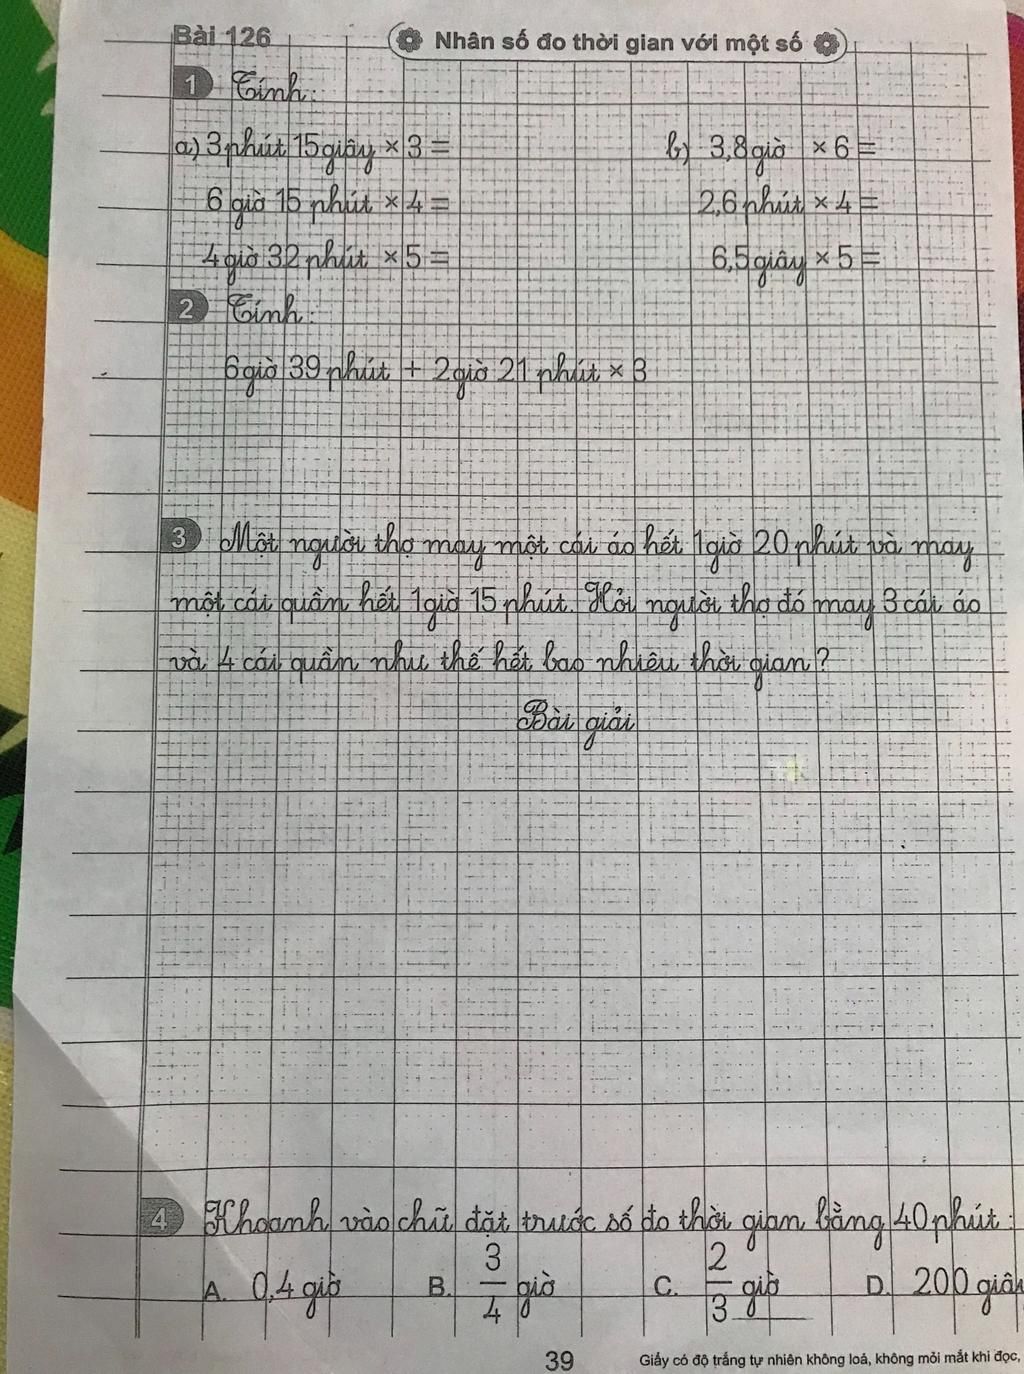 Bài 126
Nhân số đo thời gian với một số
1 Tính:
a) 3 phút 15 giây × 3 = b) 3,8 giờ × 6 =
6 giờ 15 phút × 4 = 2,6 phút × 4 =
4 giờ 32 phút × 5 = 6,5 giây × 5 =
2 Tính:
6 giờ 39 phút + 2 giờ 21 phút × 3
3 Một người thợ may một cái áo hết 1 giờ 20 phút và may
một cái quần hết 1 giờ 15 phút. Hỏi người thợ đó may 3 cái áo
và 4 cái quần như thế hết bao nhiêu thời gian?
Bài giải
4 Khoanh vào chữ đặt trước số đo thời gian bằng 40 phút:
A. 0,4 giờ B. 3/4 giờ C. 2/3 giờ D. 200 giây
39 Giấy có độ trắng tự nhiên không loá, không mỏi mắt khi đọc,